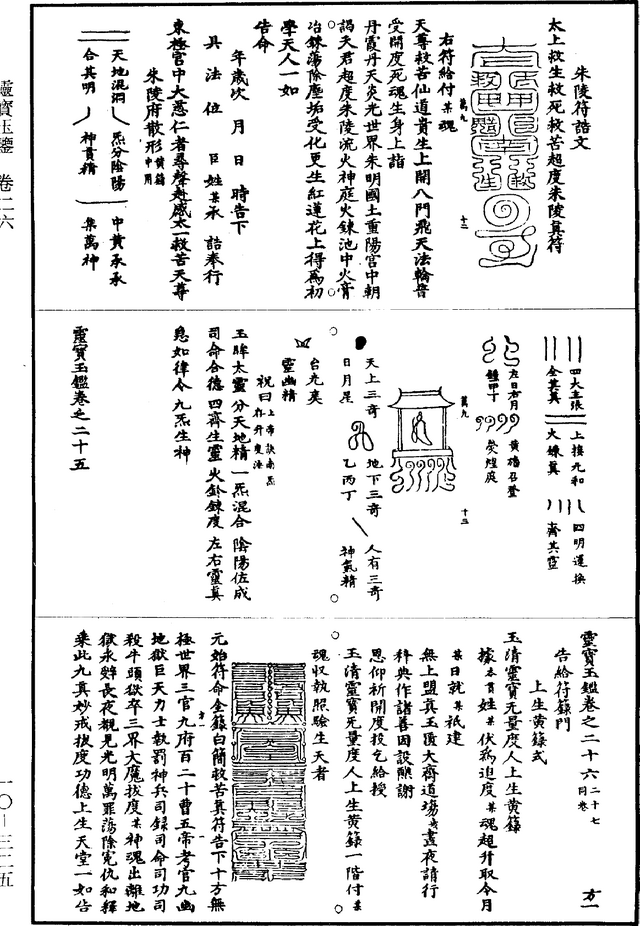 朱陵符誥文
太上救生救死救苦超度朱陵真符
右符給付某魂
萬九
十二
天尊救苦仙道貴生上開八門飛天法輪普
受開度死魂生身上詣
丹霞丹天炎光世界朱明國土重陽宮中朝
謁天君超度朱陵流火神庭火鍊池中火膏
冶鍊蕩除塵垢受化更生紅蓮花上得為初
學天人一如
告命
年歲次 月 日 時告下
具 法 位 臣姓某承 誥奉行
東極宮中大慈仁者尋聲赴感太一救苦天尊
朱陵府散形黃籙中用
天地混洞 炁分陰陽 中黃承承
合其明 神貫精 集萬神
四大主張 上接九和 四明運換
全其真 大鍊真 齊其靈
左日右月 黃旛召登
鍾甲丁 熒煌庭
萬九
十三
天上三奇 地下三奇 人有三奇
日月星 乙丙丁 神氣精
台光爽
靈幽精
祝曰
玉眸太靈分天地精一炁混合陰陽佐成
司命合德四齊生靈火鈴鍊度左右靈真
急如律令九炁生神
靈寶玉鑑卷之二十五
靈寶玉鑑卷之二十六二十七同卷 方一
告給符籙門
上生黃籙式
玉清靈寶无量度人上生黃籙
據本貫姓某伏為追度某魂超升取今月
某日就某祇建
無上盟真玉匱大齋道場幾晝夜請行
科典作諸善因設醮謝
恩仰祈開度投乞給授
玉清靈寶无量度人上生黃籙一階付某
魂収執照驗生天者
元始符命金籙白簡救苦真符告下十方無
極世界三官九府百二十曹五帝考官九幽
地獄巨天力士執罰神兵司錄司命司功司
殺牛頭獄卒三界大魔拔度某神魂出離地
獄永辭長夜覩見光明萬罪蕩除冤仇和釋
乘此九真妙戒拔度功德上生天堂一如告
方一
靈寶玉鑒 卷二六
一〇—三二五